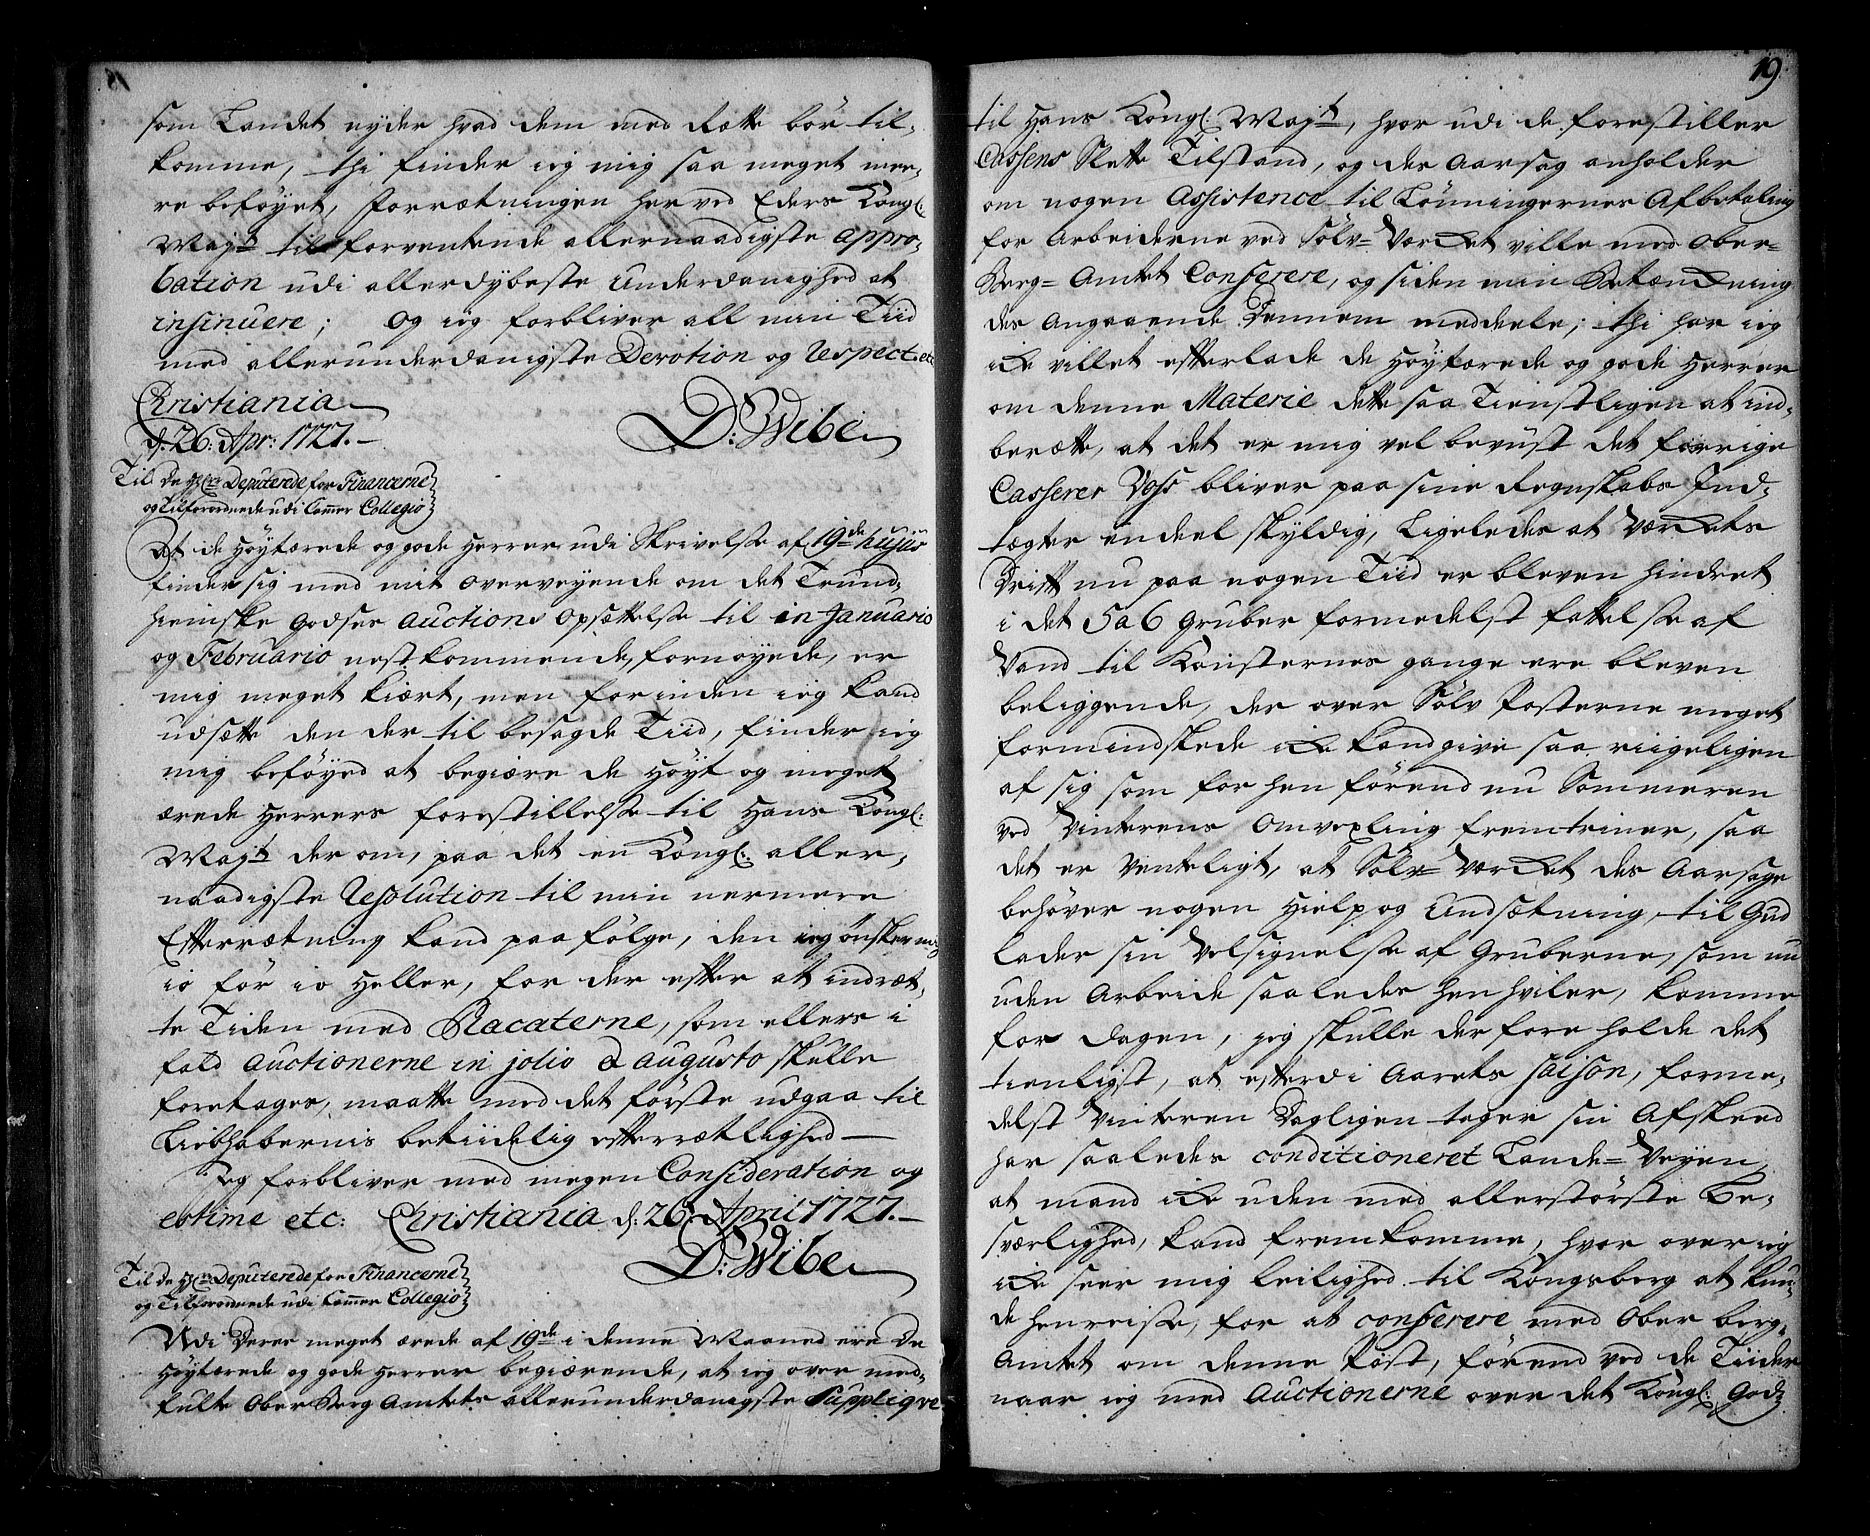 som Landet nyder hvad dem med Rætte bör til-
komme, thi finder ieg mig saa meget mee-
re beföyet, Forrætningen herved Eders Kongl:
Mayt til forventende allernaadigste appro-
bation udi allerdybeste underdanighed at
insinuere; Og ieg forbliver all min Tiid
med allerunderdanigste Devotion og Respect etc
Christiania
d: 26: Apr: 1727.
D: Wibe
Til de Hrr Deputerede for Financerne
og Tilforordnede udi Cammer Collegio
At de Höytærede og gode Herrer udi Skrivelse af 19de hujus
finder sig med mit overveyende om det Trund-
hiemske Godses Auctions Opsættelse til in Januario
og Februario nestkommende, fornöyede, er
mig meget kiært, men forinden ieg kand
udsætte den der til besagde Tiid, finder ieg
mig beföyed at begiære de Höyt og meget
ærede Herrers forestillelse til Hans Kongl:
Mayt der om, paa det en Kongl: aller-
naadigste Resolution til min nermere
Efterrætning kand paa fölge, den ieg önsker mig
io för io heller, for der efter at indræt-
te Tiden med Placaterne, som ellers i
fald Auctionerne in julio & augusto skulle
foretages, maatte med det förste udgaa til
Liebhabernis betiidelig efterrætlighed
Jeg forbliver med megen Consideration og
estime etc: Christiania d: 26: April 1727.
D: Wibe
Til de Hrr Deputerede for Financerne
og Tilforordnede udi Cammer Collegio
Udi Deres meget ærede af 19de i denne Maaned ere De
Höytærede og gode Herrer begiærende, at ieg over med-
fulte Ober Berg Amtets allerunderdanigste Suppliqve
19.
til Hans Kongl: Mayt, hvor udi de forestiller
Cassens Slette Tilstand, og der Aarsag anholder
om nogen Assistence til Lönningernes Afbetaling
for Arbeiderne ved Sölv-Værcket ville med Ober-
Berg-Amtet Conferere, og siden min Betænckning
des Angaaende Dennem meddeele; thi har ieg
icke villet efterlade de Höytærede og gode Herrer
om denne Materie dette saa Tienstligen at ind-
berætte, at det er mig vel bevust det forrige
Casserer Voss bliver paa sine Regnskabs Ind-
tægter endeel skyldig, Ligeledes at Værckets
Drift nu paa nogen Tiid er bleven hindret
i det 5 a 6 Gruber formedelst fattelse af
Vand til Konsternes gange ere bleven
beliggende, der over Sölv Posterne meget
formindskede icke kand give saa riigeligen
af sig som for hen förend nu Sommeren
ved Vinterens Omvexling fremtriner, saa
det er Venteligt, at Sölv-Værcket des Aarsage
behöver nogen Hielp og Undsætning, til Gud
lader sin Velsignelse af Gruberne, som nu
uden Arbeide saaledes henhviler, komme
for dagen, jeg skulle derfore holde det
tienligst, at efterdi Aarets saison, forme-
delst Vinteren Dagligen tager sin Afskeed
har saaledes conditioneret Lande-Veyen,
at mand icke uden med allerstörste Be-
sværlighed, kand fremkomme, hvor over ieg
icke seer mig leilighed til Kongsberg at kun-
de henreise, for at conferere med Ober berg-
Amtet om denne Post, förend ved de Tiider
naar ieg med Auctionerne over det Kongl: God-